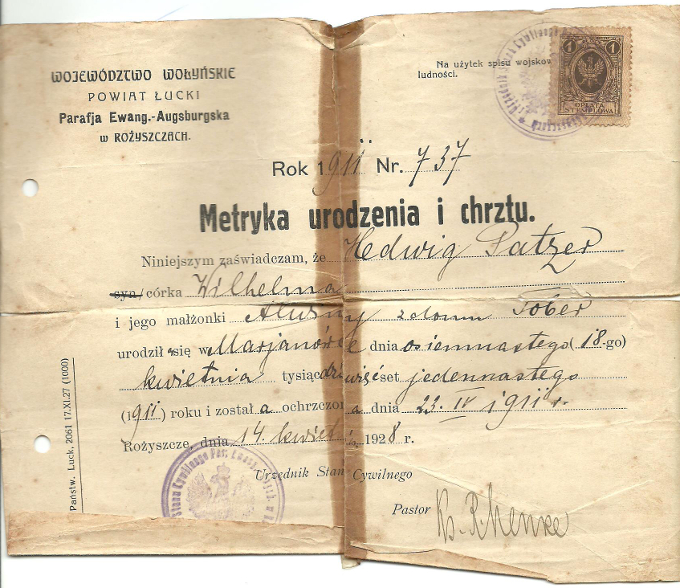 WOJEWÓDZTWO WOŁYŃSKIE
POWIAT ŁUCKI
Parafja Ewang.-Augsburgska
w ROŻYSZCZACH.
Na użytek spisu wojskow
ludności.
1 1
OPŁATA
STEMPLOWA
Rok 1911 Nr. 737
Metryka urodzenia i chrztu.
Niniejszym zaświadczam, że Hedwig Patzer
syn/córka Wilhelma
i jego małżonki z domu Tober
urodził się w Marjanówce dnia osiemnastego (18-go)
kwietnia tysiąc dziewięćset jedennastego
(1911) roku i został a ochrzczona dnia 23. IV 1911 r.
Rożyszcze, dnia 14. kwiet 1928 r.
Urzędnik Stanu Cywilnego
Pastor
Państw. Łuck. 2061 17.XI.27 (1000)